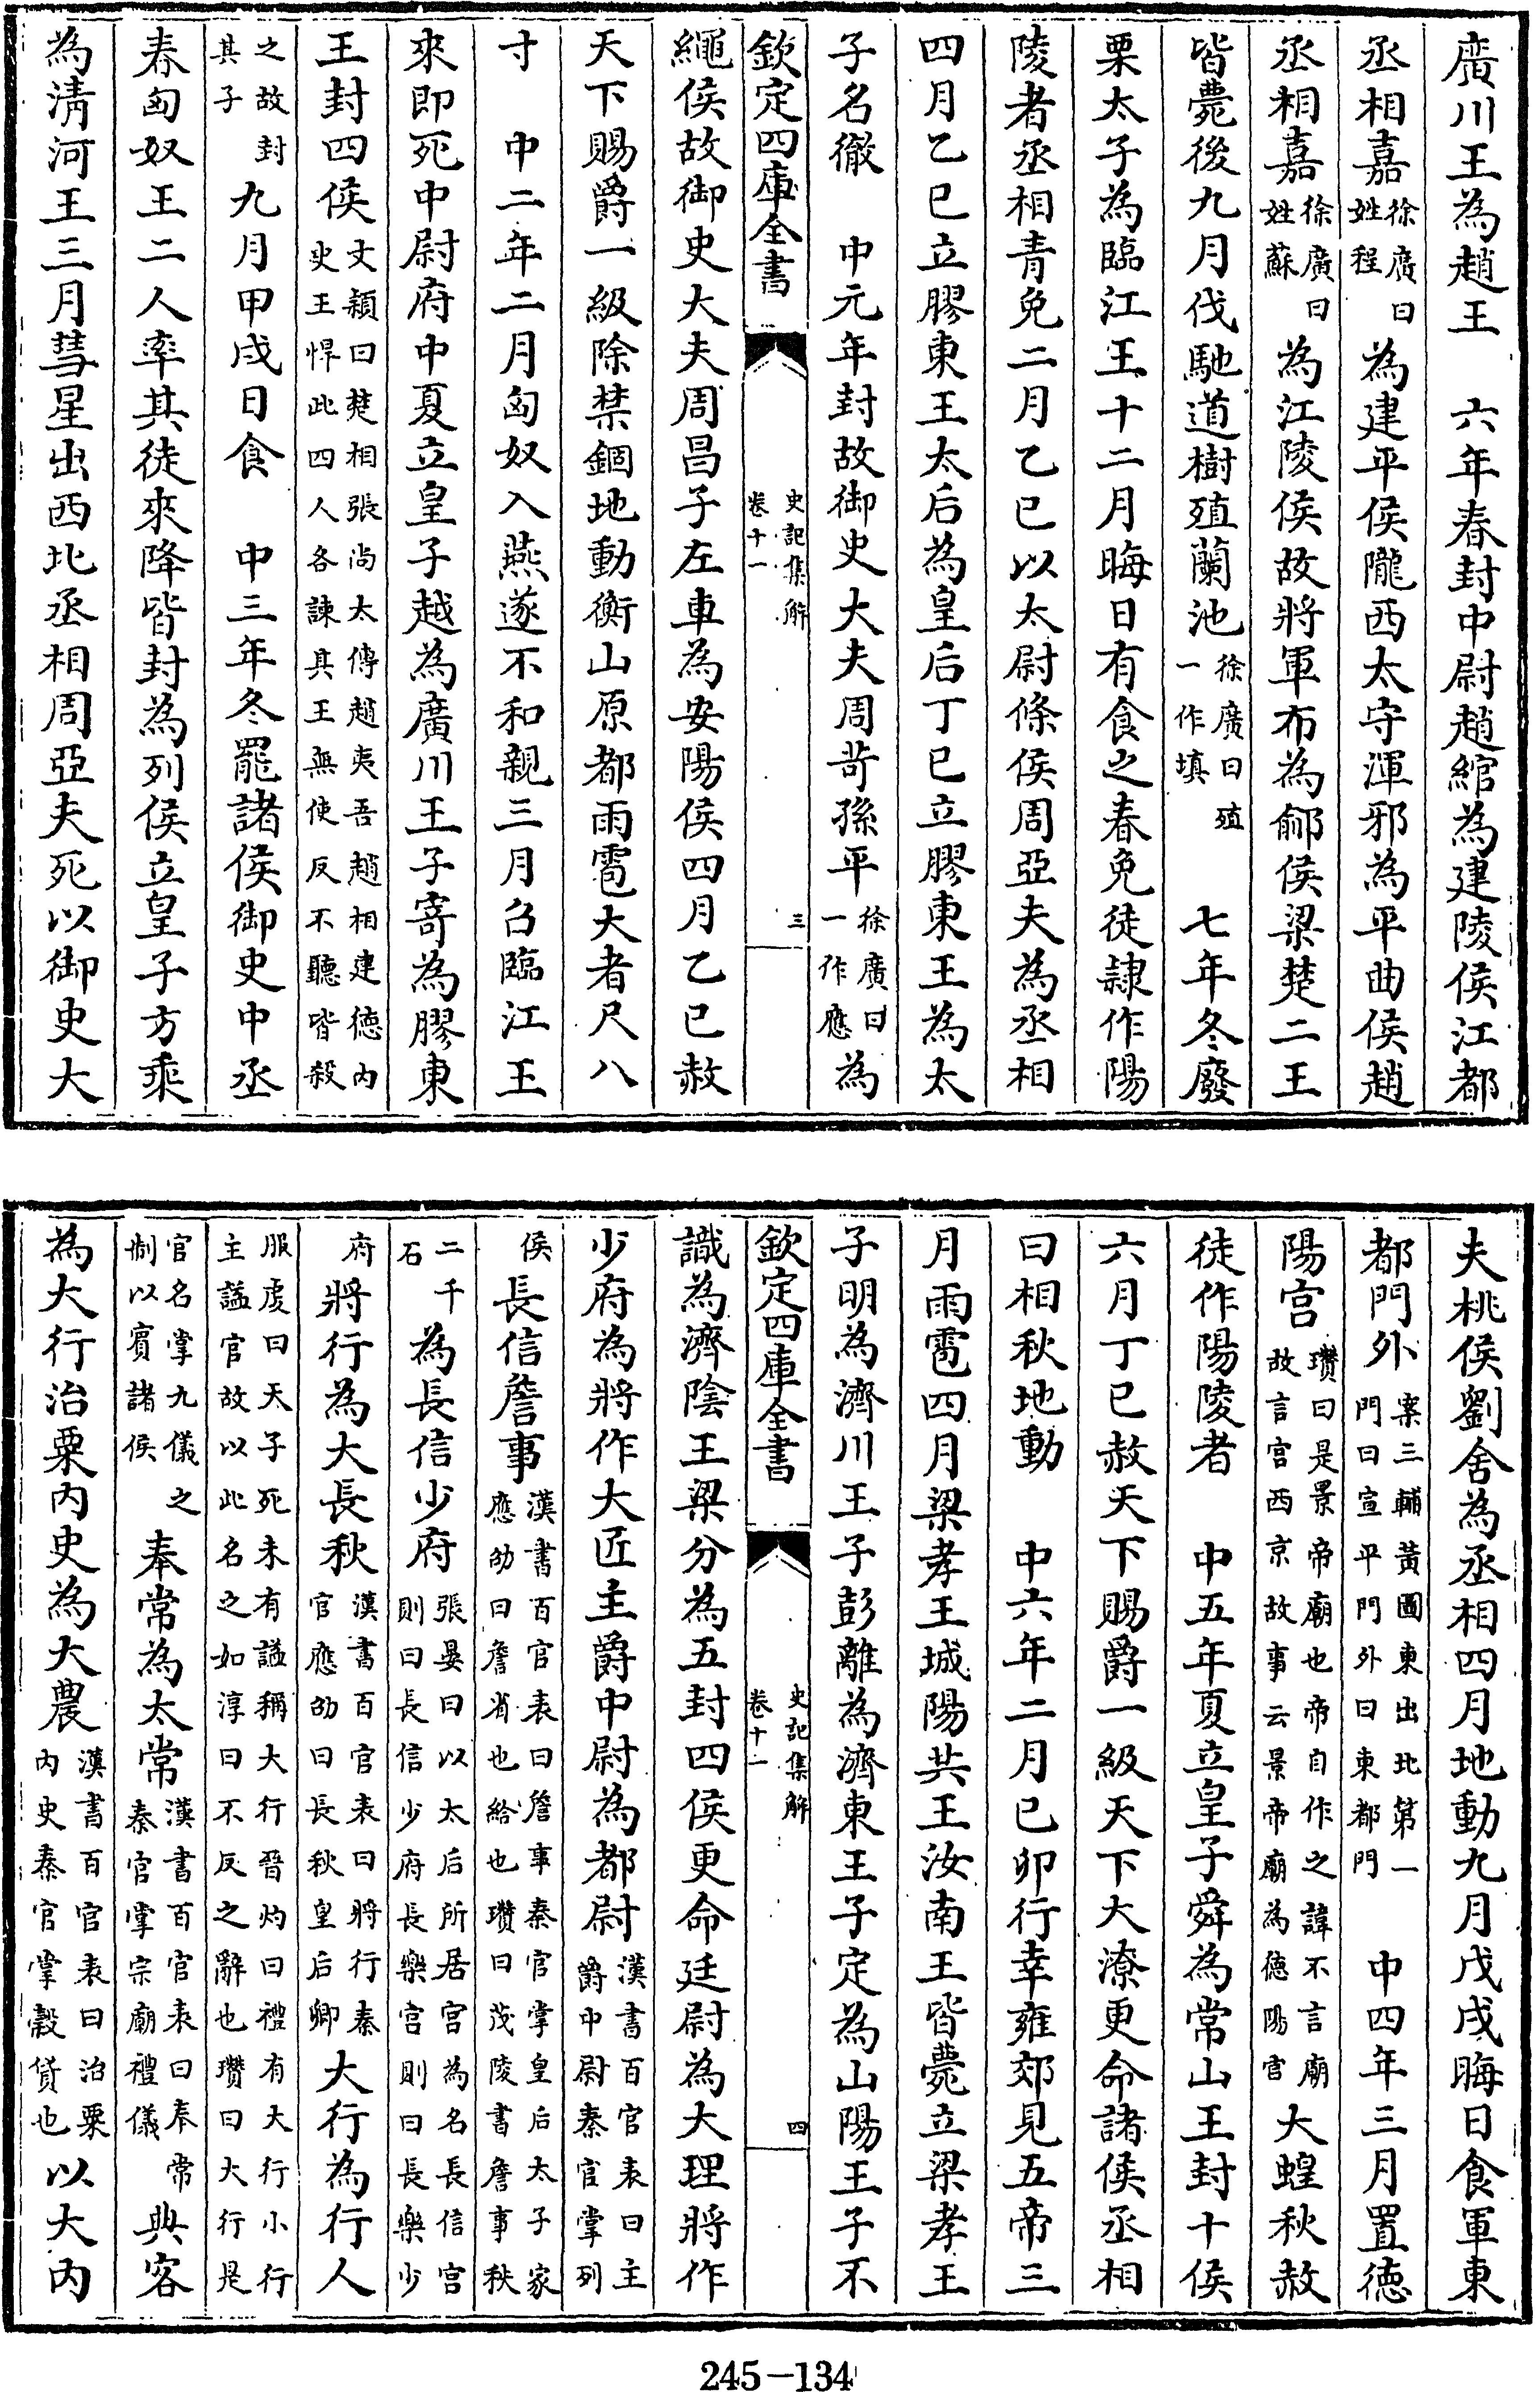 廣川王為趙王　六年春封中尉趙綰為建陵侯江都
丞相嘉徐廣曰姓程為建平侯隴西太守渾邪為平曲侯趙
丞相嘉徐廣曰姓蘇為江陵侯故將軍布為鄃侯梁楚二王
皆薨後九月伐馳道樹殖蘭池徐廣曰殖一作填　七年冬廢
栗太子為臨江王十二月晦日有食之春免徒隷作陽
陵者丞相青免二月乙巳以太尉條侯周亞夫為丞相
四月乙巳立膠東王太后為皇后丁巳立膠東王為太
子名徹　中元年封故御史大夫周苛孫平徐廣曰一作應為
欽定四庫全書　史記集解卷十一　三
繩侯故御史大夫周昌子左車為安陽侯四月乙巳赦
天下賜爵一級除禁錮地動衡山原都雨雹大者尺八
寸　中二年二月匈奴入燕遂不和親三月召臨江王
來即死中尉府中夏立皇子越為廣川王子寄為膠東
王封四侯文穎曰楚相張尚太傅趙夷吾趙相建德內史王悍此四人各諫其王無使反不聽皆殺
之故封其子九月甲戌日食　中三年冬罷諸侯御史中丞
春匈奴王二人率其徒來降皆封為列侯立皇子方乘
為清河王三月彗星出西北丞相周亞夫死以御史大
夫桃侯劉舍為丞相四月地動九月戊戌晦日食軍東
都門外案三輔黃圖東出北第一門曰宣平門外曰東都門　中四年三月置德
陽宮瓚曰是景帝廟也帝自作之諱不言廟故言宮西京故事云景帝廟為德陽宮大蝗秋赦
徒作陽陵者　中五年夏立皇子舜為常山王封十侯
六月丁巳赦天下賜爵一級天下大潦更命諸侯丞相
曰相秋地動　中六年二月巳卯行幸雍郊見五帝三
月雨雹四月梁孝王城陽共王汝南王皆薨立梁孝王
子明為濟川王子彭離為濟東王子定為山陽王子不
欽定四庫全書　史記集解卷十一　四
識為濟陰王梁分為五封四侯更命廷尉為大理將作
少府為將作大匠主爵中尉為都尉漢書百官表曰主爵中尉秦官掌列
侯長信詹事漢書百官表曰詹事秦官掌皇后太子家應劭曰詹省也給也瓚曰茂陵書詹事秩
二千石為長信少府張晏曰以太后所居宮為名長信宮則曰長信少府長樂宮則曰長樂少
府將行為大長秋漢書百官表曰將行秦官應劭曰長秋皇后卿大行為行人
服虔曰天子死未有諡稱大行晉灼曰禮有大行小行主諡官故以此名之如淳曰不反之辭也瓚曰大行是
官名掌九儀之制以賓諸侯奉常為太常漢書百官表曰奉常秦官掌宗廟禮儀典客
為大行治粟內史為大農漢書百官表曰治粟內史秦官掌穀貨也以大內
245-134